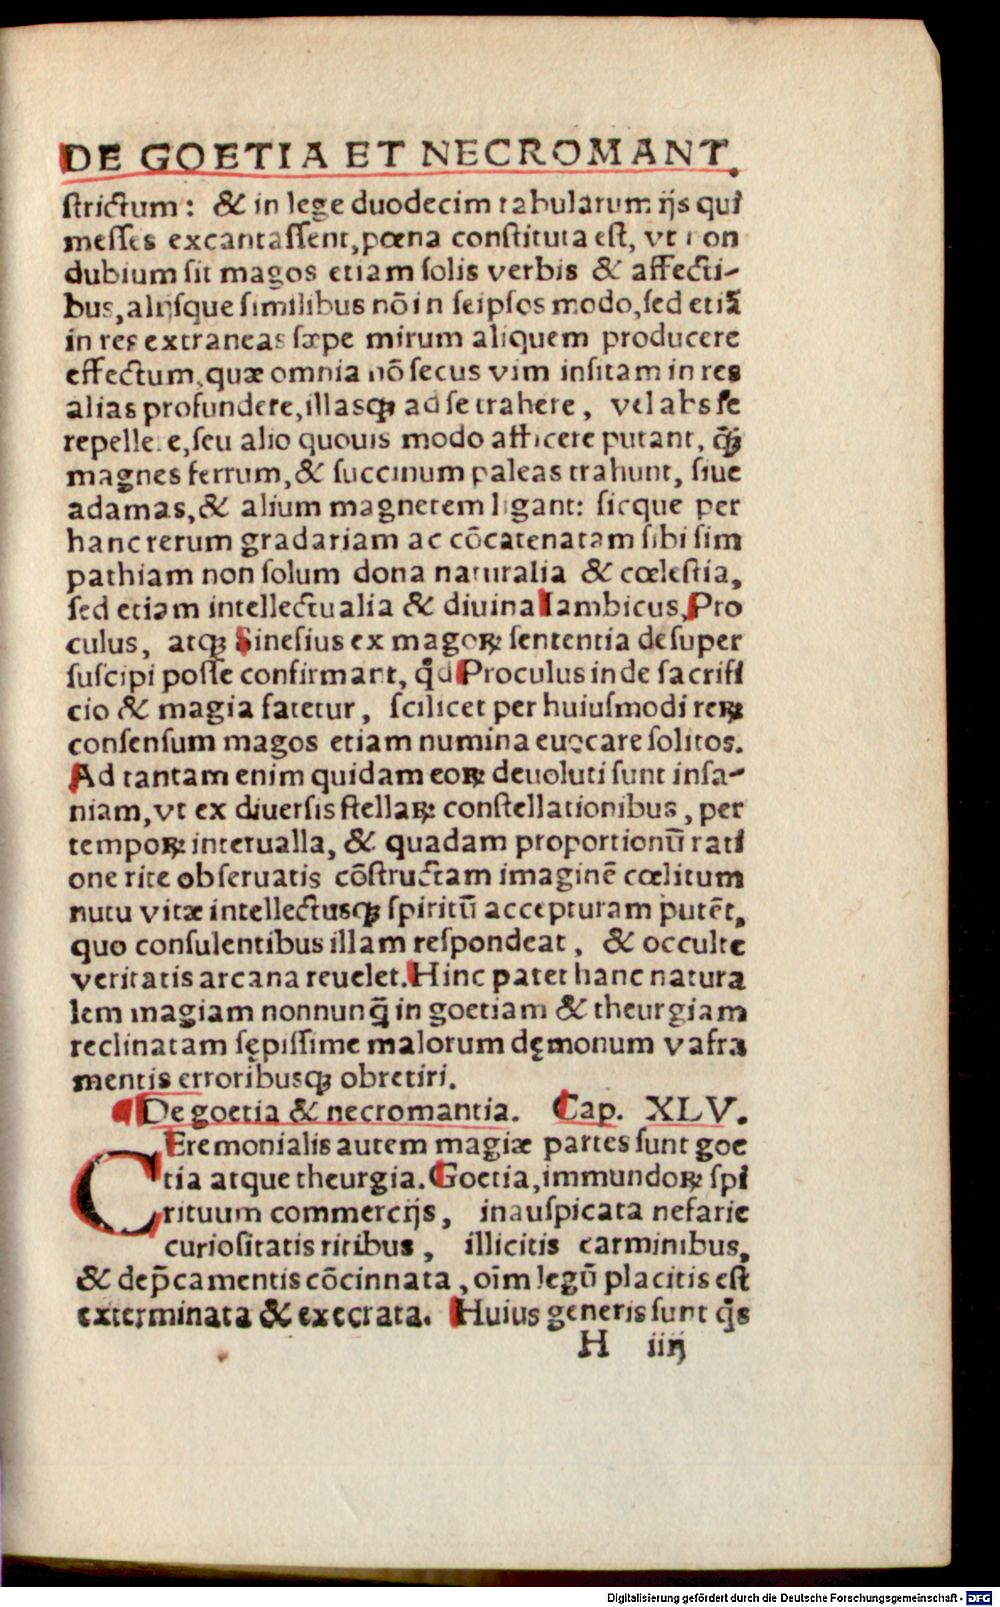 DE GOETIA ET NECROMANT.
strictum: & in lege duodecim tabularum ijs qui
messes excantassent, pœna constituta est, vt non
dubium sit magos etiam solis verbis & affecti-
bus, alijsque similibus nō in seipsos modo, sed etiā
in res extraneas sæpe mirum aliquem producere
effectum, quæ omnia nō secus vim insitam in res
alias profundere, illasqꝫ ad se trahere, vel abs se
repellere, seu alio quouis modo afficere putant, q̄ꝫ
magnes ferrum, & succinum paleas trahunt, siue
adamas, & alium magnetem ligant: sicque per
hanc rerum gradariam ac cōcatenatam sibi sim
pathiam non solum dona naturalia & cœlestia,
sed etiam intellectualia & diuina Iambicus, Pro
culus, atqꝫ Sinesius ex magoꝝ sententia desuper
suscipi posse confirmant, qd̄ Proculus in de sacrifi
cio & magia fatetur, scilicet per huiusmodi reꝝ
consensum magos etiam numina euocare solitos.
Ad tantam enim quidam eoꝝ deuoluti sunt insa-
niam, vt ex diuersis stellaꝝ constellationibus, per
tempoꝝ interualla, & quadam proportionū rati
one rite obseruatis cōstructam imaginē cœlitum
nutu vitæ intellectusqꝫ spiritū accepturam putēt,
quo consulentibus illam respondeat, & occulte
veritatis arcana reuelet. Hinc patet hanc natura
lem magiam nonnunq̄ in goetiam & theurgiam
reclinatam sępissime malorum dęmonum vafra
mentis erroribusqꝫ obretiri.
De goetia & necromantia. Cap. XLV.
CEremonialis autem magiæ partes sunt goe
tia atque theurgia. Goetia, immundoꝝ spi
rituum commercijs, inauspicata nefarie
curiositatis ritibus, illicitis carminibus,
& dep̄camentis cōcinnata, oīm legū placitis est
exterminata & execrata. Huius generis sunt q̄s
H iiij
Digitalisierung gefördert durch die Deutsche Forschungsgemeinschaft - DFG